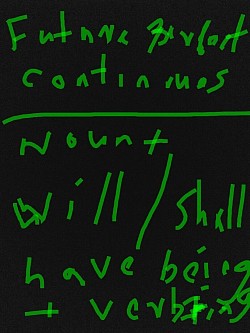 Future Perfect
continuos
Noun +
Will / Shall
have being
+ verb